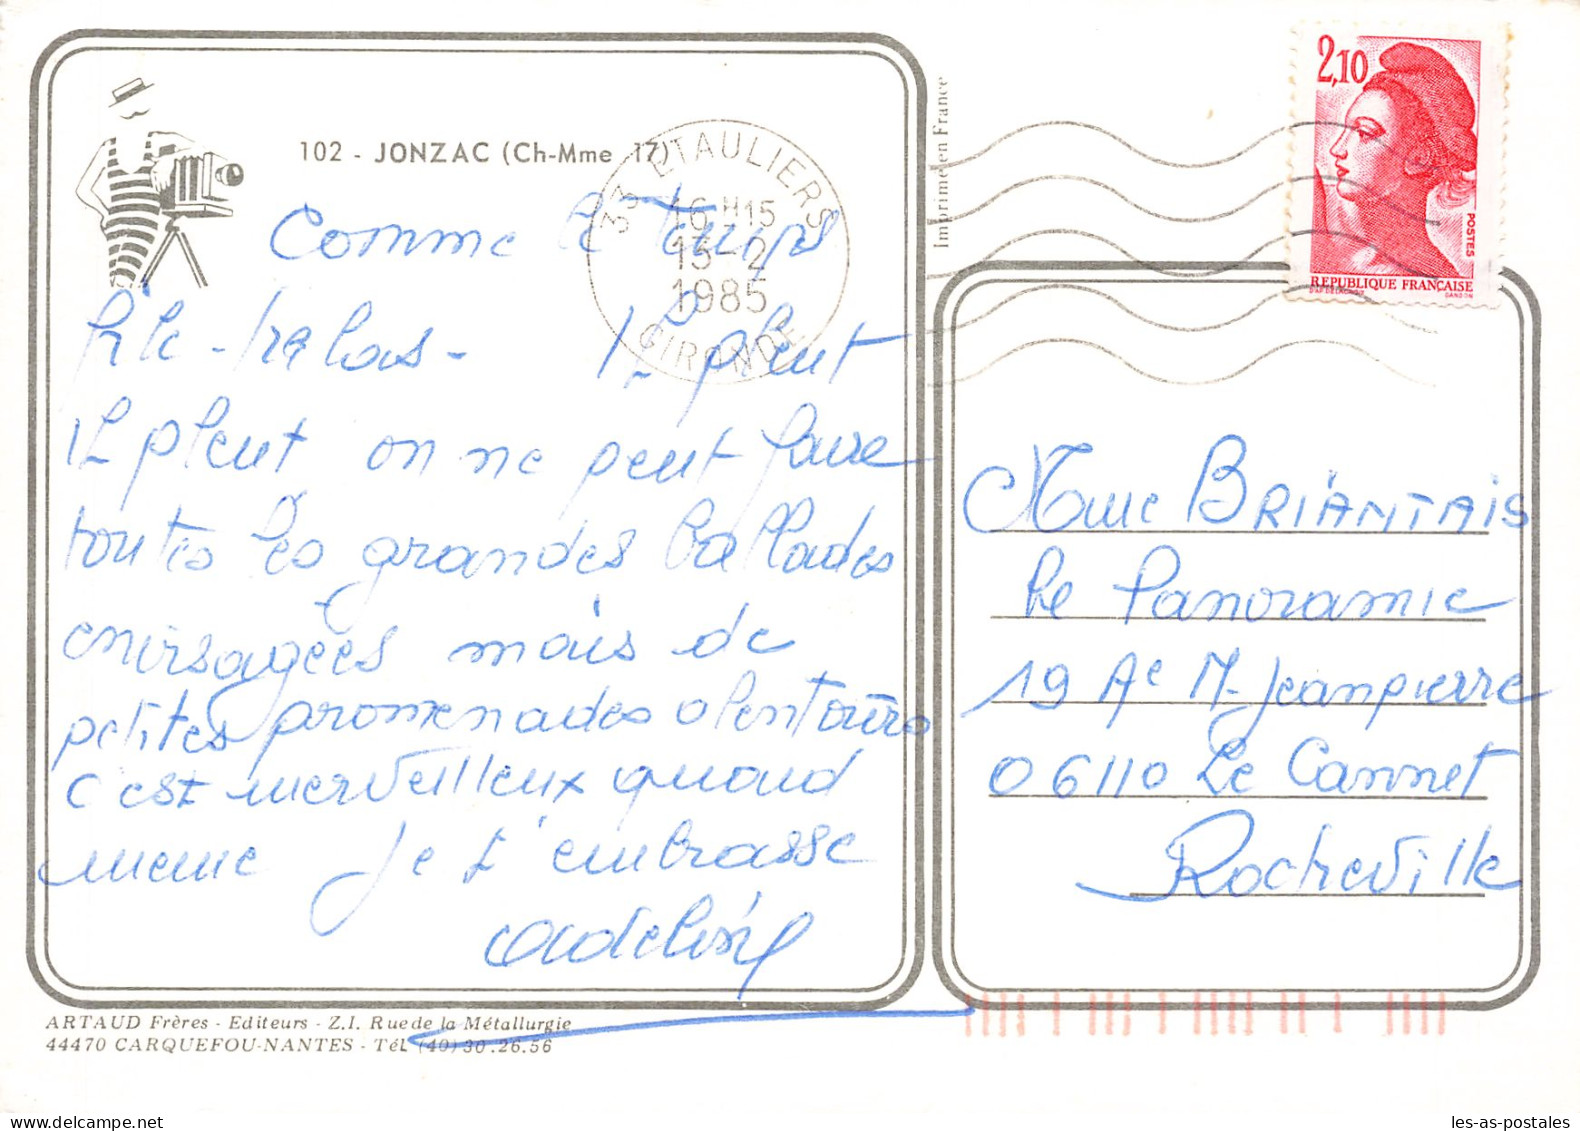 102 - JONZAC (Ch-Mme 17)
33 ETAULIERS
16 H15
13-2
1985
GIRONDE
Imprimé en France
2,10
POSTES
REPUBLIQUE FRANÇAISE
GANDON
Comme le temps
hélas - Il pleut
Il pleut on ne peut faire
toutes les grandes ballades
envisagées mais de
petites promenades alentours
c'est merveilleux quand
meme Je t'embrasse
Mme BRIANTAIS
Le Panoramic
19 Ae M. Jeanpierre
06110 Le Cannet
Rocheville
ARTAUD Frères - Editeurs - Z.I. Rue de la Métallurgie
44470 CARQUEFOU-NANTES - Tél. (40) 30.26.56
les-as-postales